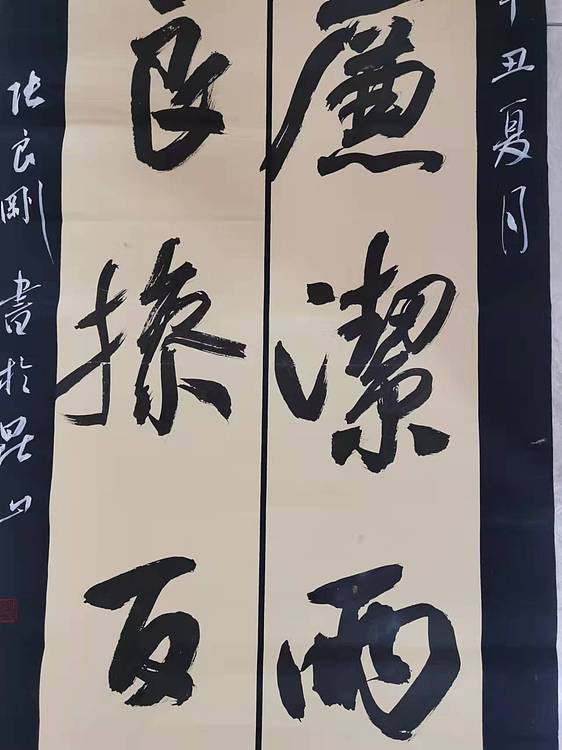 丑夏月
廉潔兩
良操百
張良剛 書於崑山